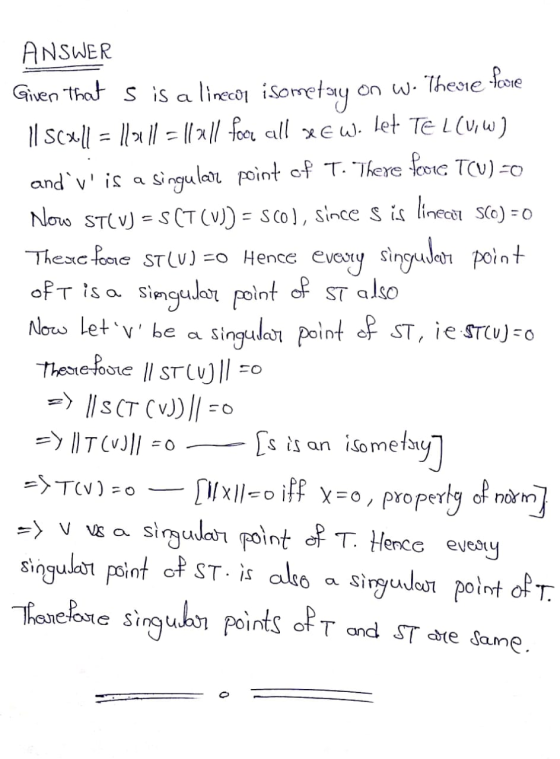 ANSWER
Given that S is a linear isometry on W. Therefore
||S(x)|| = ||x|| = ||x|| for all x ∈ W. Let T ∈ L(V,W)
and 'v' is a singular point of T. Therefore T(V)=0
Now ST(V) = S(T(V)) = S(0), since S is linear S(0)=0
Therefore ST(V)=0 Hence every singular point
of T is a simgular point of ST also
Now Let 'v' be a singular point of ST, ie ST(V)=0
Therefore ||ST(V)||=0
=> ||S(T(V))||=0
=> ||T(V)||=0 — [S is an isometry]
=> T(V)=0 — [||X||=0 iff X=0, property of norm]
=> V is a singular point of T. Hence every
singular point of ST. is also a singular point of T.
Therefore singular points of T and ST are same.